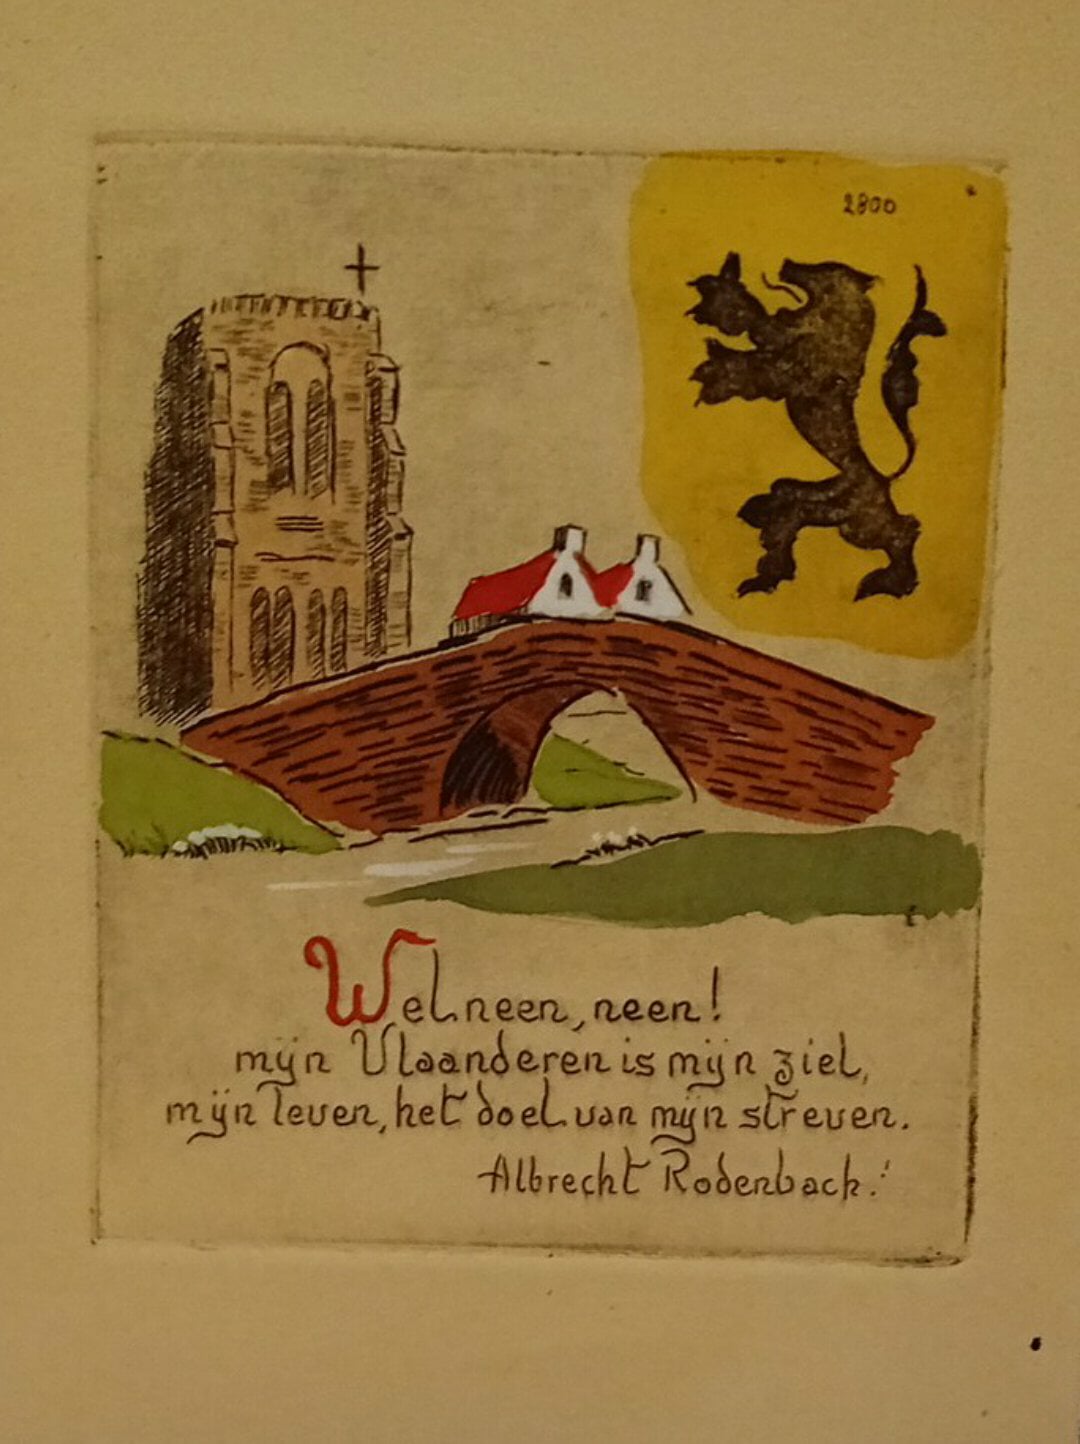 2800
Wel neen, neen!
mijn Vlaanderen is mijn ziel,
mijn leven, het doel van mijn streven.
Albrecht Rodenbach.